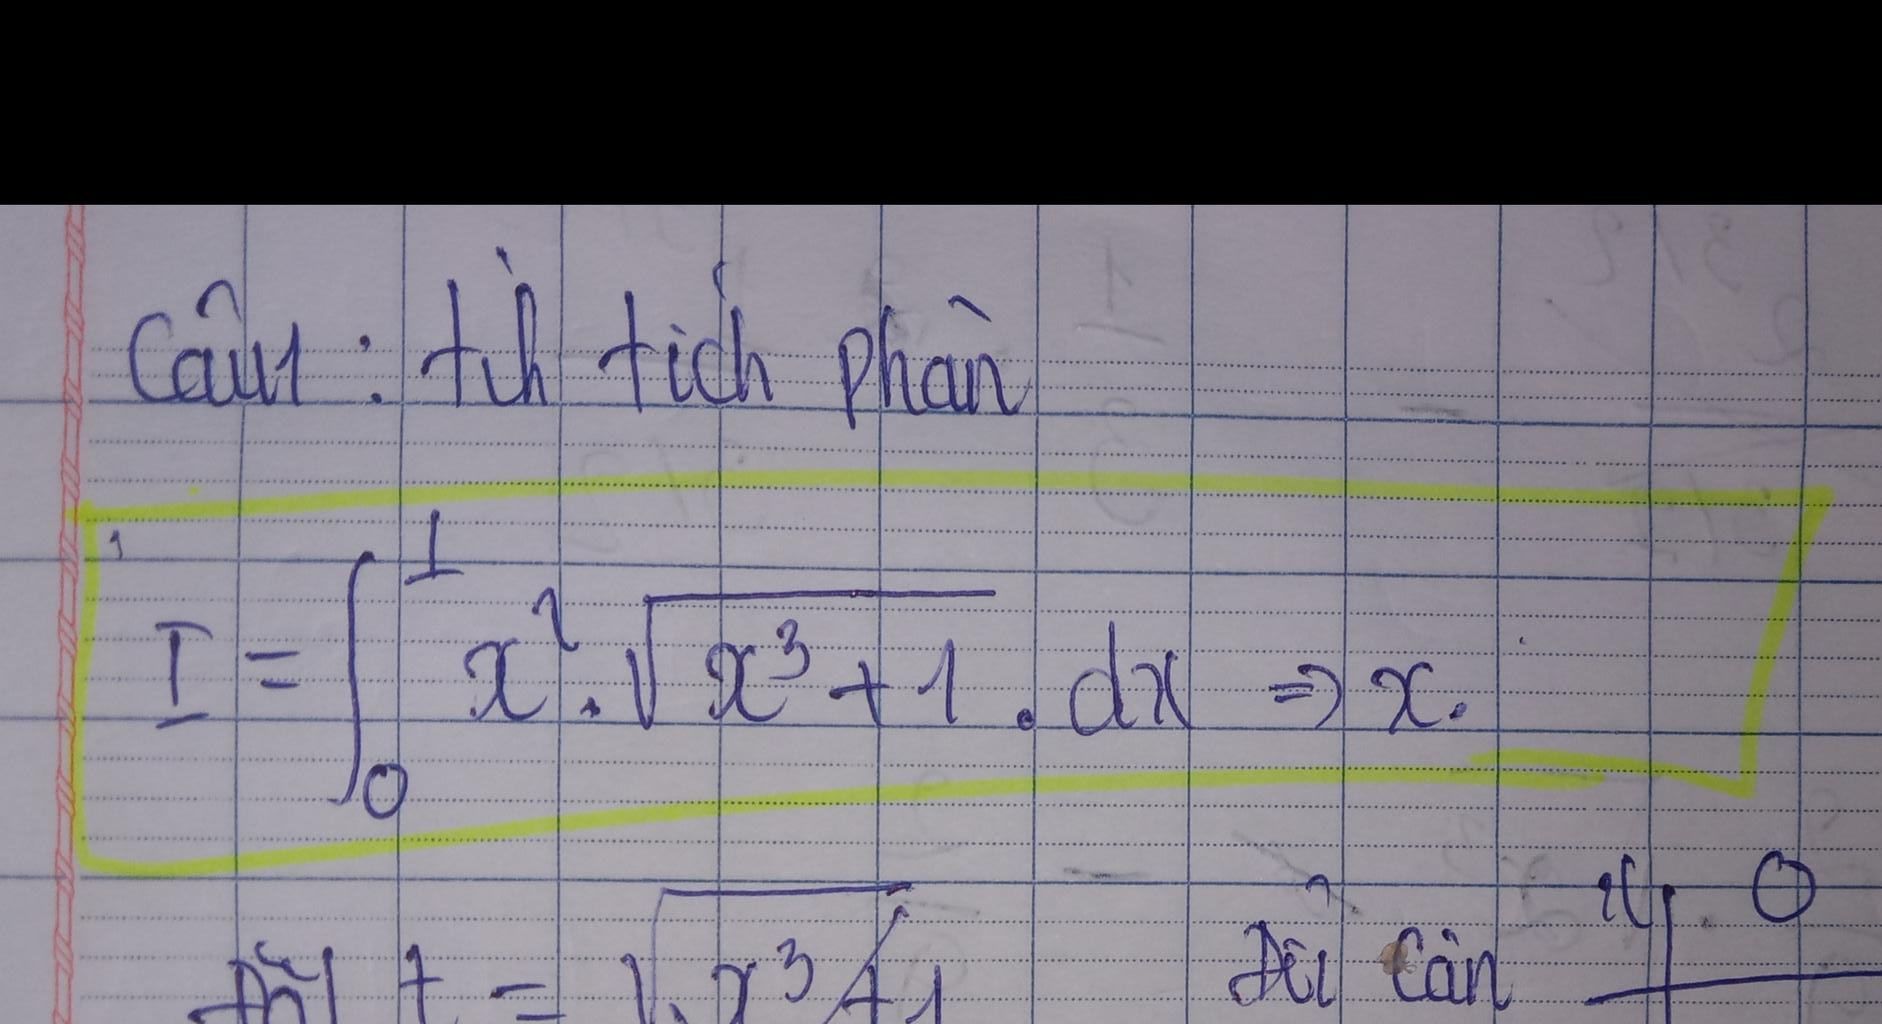 Câu1: tính tích phân
I = ∫₀¹ x². √(x³+1) . dx ⇒ x.
Đặt t = √(x³+1) Đổi cận x 0